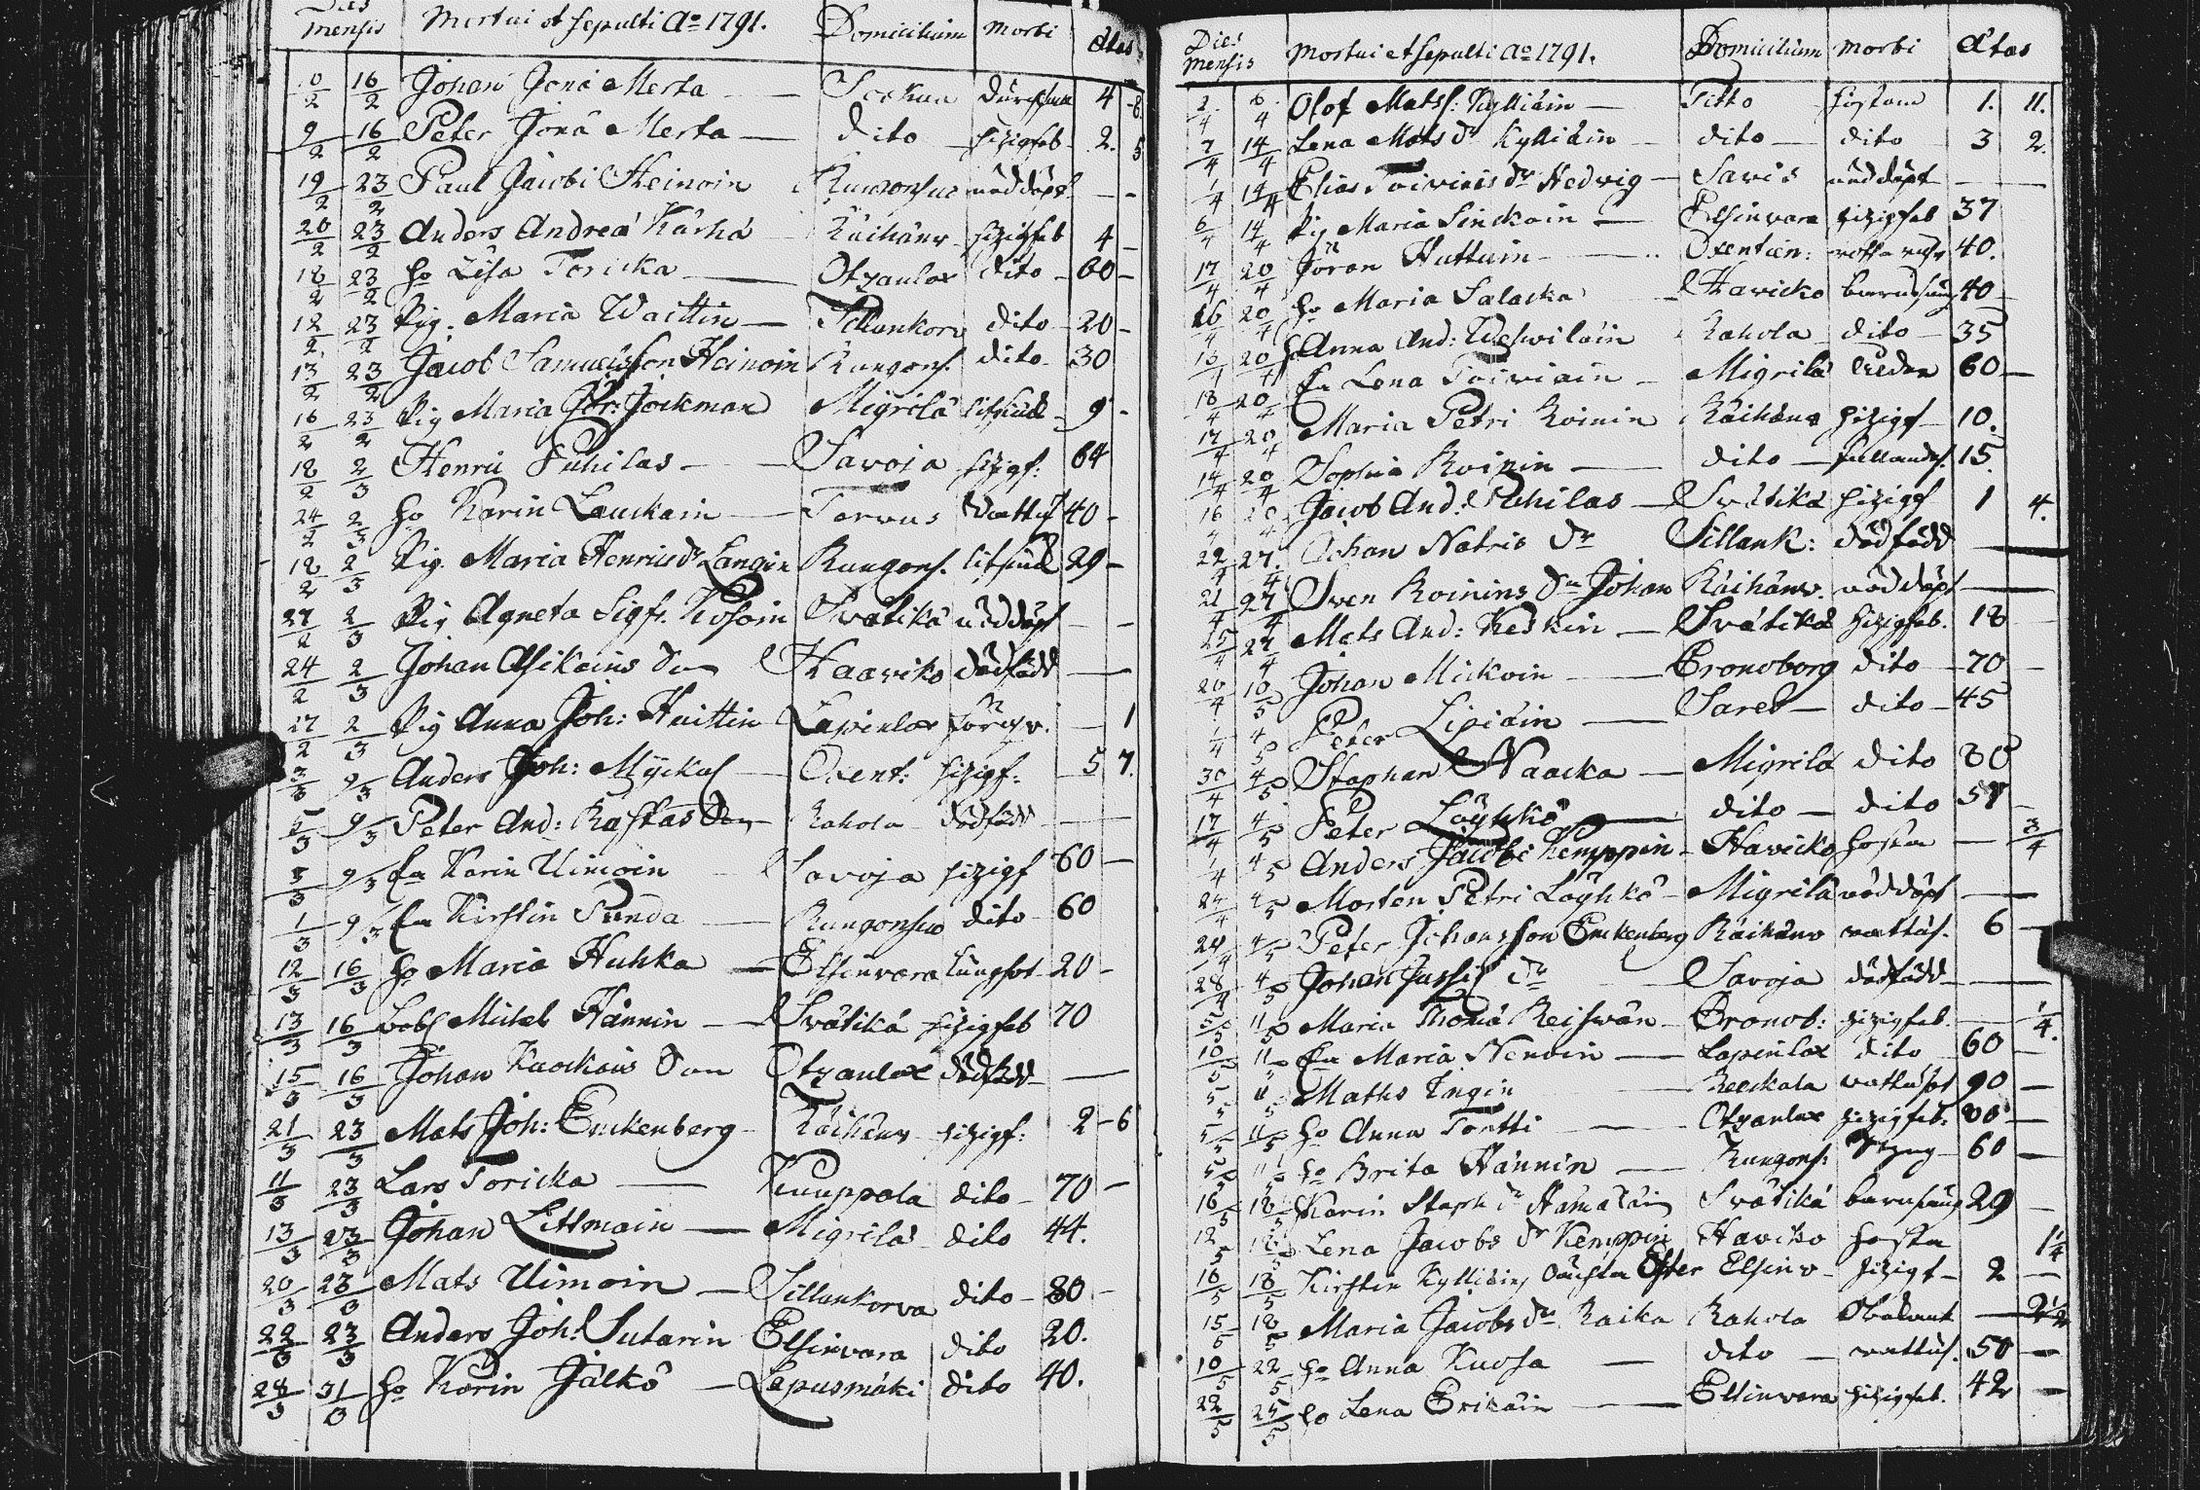 Dies mensis Mortui et sepulti Ao 1791. Domicilium Morbi Ætas
10/2 16/2 Johan Jona Merta — 4 8
9/2 16/2 Peter Jona Merta — dito hizigfeb 2. 5
19/2 23/2 Paul Jacobi Heinoin nöddöpt — -
20/2 23/2 Anders Andreæ Kärhä Räihänv hizigfeb 4 -
18/2 23/2 ho Lisa Toricka — Otzanlax dito - 60 -
12/2 23/2 Pig. Maria Waittin — Sillankorv dito - 20 -
13/2 23/2 Jacob Samuelsson Heinoin Rungons. dito - 30
16/2 23/2 Pig Maria Joh: Jockman Migrilä 9 -
18/2 2/3 Henric Puhilas — Savoja hizigf: 64
24/2 2/3 ho Karin Lauckain — Tervus 40 -
18/2 2/3 Pig. Maria Henricsdr Langin Rungons. 29 -
27/2 2/3 Pig Agneta Sigfr. Kosoin Svätikä nöddöpt — -
24/2 2/3 Johan Asikains Son Haaviko dödfödd —
27/2 2/3 Pig Anna Joh: Huittin Lapinlax — 1
3/3 9/3 Anders Joh: Oxent: hizigf: - 5 7.
5/3 9/3 Peter And: Raskas Son Rahola dödfödd —
5/3 9/3 Ea Karin Uimoin Savoja hizigf 60 —
1/3 9/3 Ea Kirstin Punda — Rungonsuo dito - 60
12/3 16/3 ho Maria Huhka — Elsinvara lungsot - 20 -
13/3 16/3 Michel Hännin — Svätikä hizigfeb 70
15/3 16/3 Johan Son Otzanlax dödfödd —
21/3 23/3 Mats Joh: Enckenberg Räihänv hizigf: 2 - 6
11/3 23/3 Lars Toricka — Kumppola dito - 70 -
13/3 23/3 Johan Littmain — Migrilä dito 44.
20/3 23/3 Mats Uimoin — Sillankorva dito - 80 -
22/3 23/3 Anders Joh: Sutarin Elsinvara dito 20.
28/3 31/3 ho Karin Jälkö — Lapusmäki dito 40.
Dies mensis Mortui et sepulti Ao 1791. Domicilium Morbi Ætas
2/4 6/4 Olof Matss: Kylliäin — Titto hostan 1. 11.
7/4 14/4 Lena Mats dr Kylliäin — dito — dito 3 2.
1/4 14/4 Elias Toiviais dr Hedvig — Savis nöddöpt —
6/4 14/4 Pig Maria Sinckoin — Elsinvara hizigfeb 37
17/4 20/4 Jöran Huttuin — Oxentien: 40.
16/4 20/4 ho Maria Salacka Havicko barnsäng 40 -
13/4 20/4 ho Anna And: Weswiläin Rahola dito — 35
18/4 20/4 Ea Lena Toiviain — Migrilä ålder 60 —
17/4 20/4 Maria Petri Roinin Räihänv hizigf — 10.
14/4 20/4 Sophia Roinin — dito — fallands. 15.
16/4 20/4 Jacob And: Puhilas — Svätikä hizigf 1 4.
22/4 27/4 Johan Natris dr Sillank: dödfödd —
21/4 27/4 Sven Roinins Sn Johan Räihänv. nöddöpt —
25/4 27/4 Mats And: Keskin — Svätikä hizigfeb. 18
20/4 10/5 Johan Mickoin — Cronoborg dito — 70 —
1/4 4/5 Peter Lipiäin — Saret — dito — 45
30/4 4/5 Staphan Naacka — Migrilä dito 80
17/4 4/5 Peter Löyhkö — dito — dito 57 -
1/4 4/5 Anders Jacobi Kemppin — Havicko hosta — 3/4
24/4 4/5 Morten Petri Löyhkö — Migrilä nöddöpt —
29/4 4/5 Peter Johansson Enckenberg Räihänv vattus. 6 —
28/4 4/5 Johan Jussis dr Savoja dödfödd —
5/5 11/5 Maria Thomæ Reiswän — Cronob: hizigfeb. — 1/4.
10/5 11/5 Ea Maria Nenoin — Lapinlax dito 60 —
5/5 11/5 Maths Ingin Reeskala vattusot 90 —
5/5 11/5 ho Anna Tortti — Otzanlax hizigfeb. 80 —
5/5 11/5 ho Brita Hännin — Rungons: 60 —
16/5 18/5 Karin Staph dr Hämäläin Svätikä barnsäng 29 —
12/5 18/5 Lena Jacobs dr Kemppin Haviko hosta 1 1/4
16/5 18/5 Kirstin Kylliäins Ester Elsinv — hizigf — 2 —
15/5 18/5 Maria Jacobs dr Raika Rahola Obekant — 2 1/2
10/5 22/5 ho Anna Kuosa — dito — vattus. 50 —
22/5 25/5 ho Lena Erikäin — Elsinvara hizigfeb. 42 —